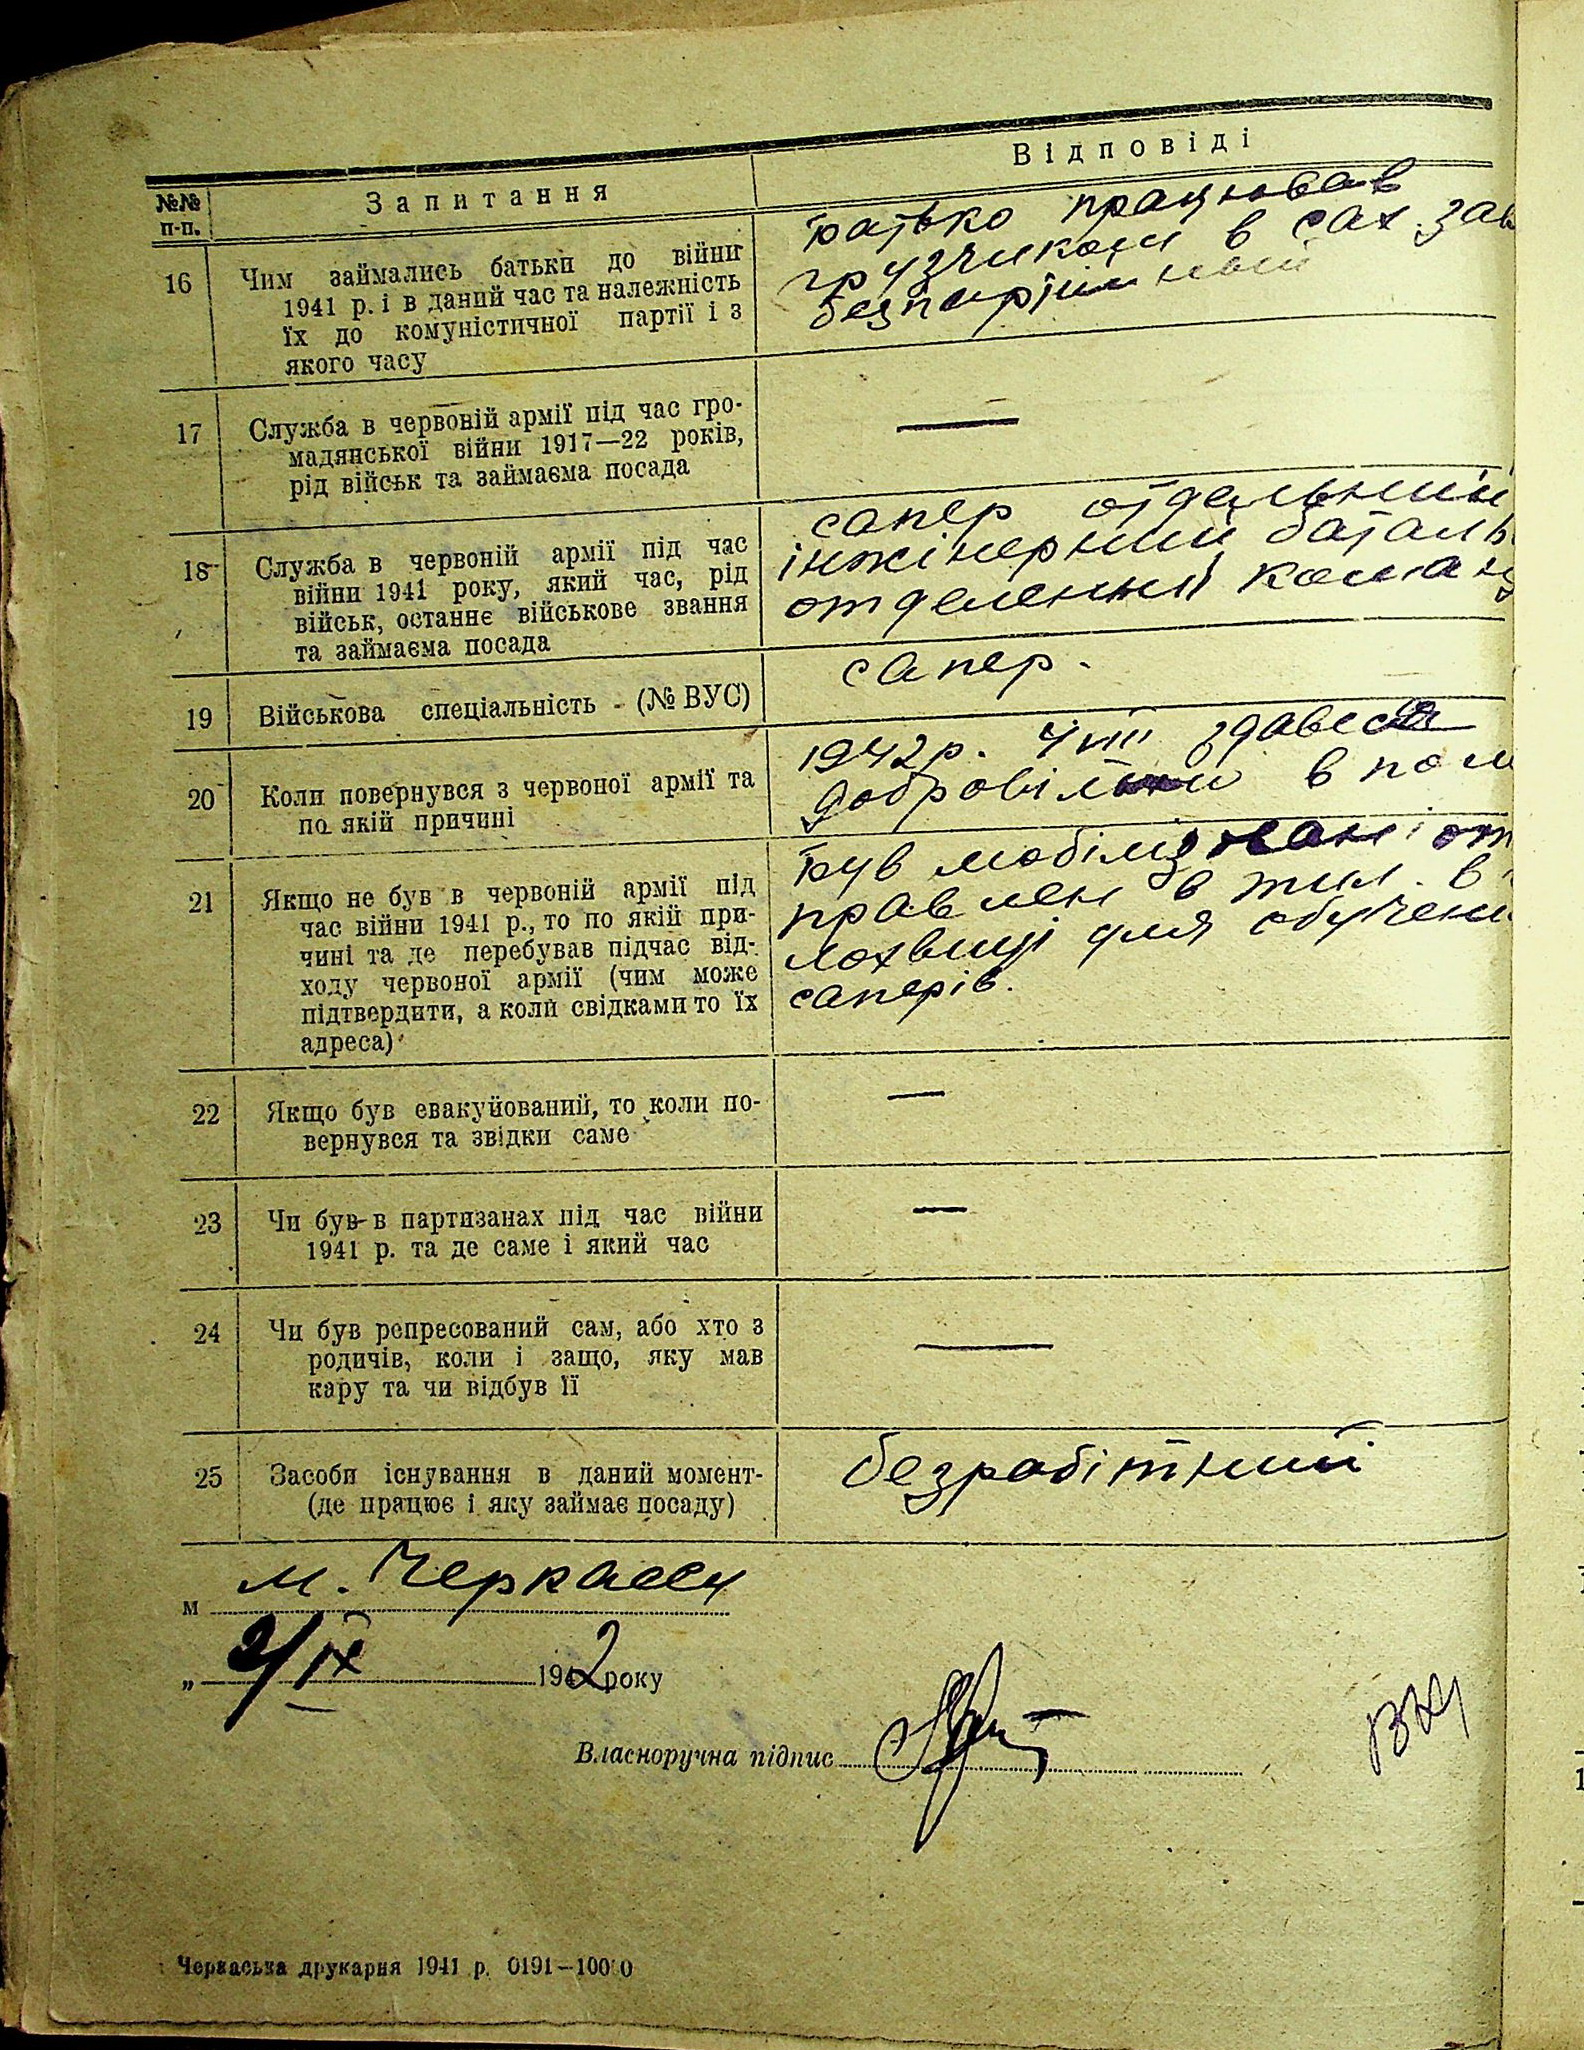 №№ п-п.
Запитання
Відповіді
16
Чим займались батьки до війни
1941 р. і в даний час та належність
їх до комуністичної партії і з
якого часу
батько працював
грузчиком в сах. зав
безпартійний
17
Служба в червоній армії під час гро-
мадянської війни 1917—22 років,
рід військ та займаєма посада
—
18
Служба в червоній армії під час
війни 1941 року, який час, рід
військ, останнє військове звання
та займаєма посада
сапер отдельний
інжінерний баталь
отделенний коман
19
Військова спеціальність - (№ ВУС)
сапер.
20
Коли повернувся з червоної армії та
по якій причині
1942р. 4/VIII здавсся
добровільно в пол
21
Якщо не був в червоній армії під
час війни 1941 р., то по якій при-
чині та де перебував підчас від-
ходу червоної армії (чим може
підтвердити, а коли свідками то їх
адреса)
був мобілізован і от
правлен в тил. в
лохвиці для обучени
саперів.
22
Якщо був евакуйований, то коли по-
вернувся та звідки саме
—
23
Чи був в партизанах під час війни
1941 р. та де саме і який час
—
24
Чи був репресований сам, або хто з
родичів, коли і защо, яку мав
кару та чи відбув її
—
25
Засоби існування в даний момент-
(де працює і яку займає посаду)
безробітний
м м. Черкассы
„ 2/IX 1942 року
Власноручна підпис
Черкаська друкарня 1941 р. 0191—10000